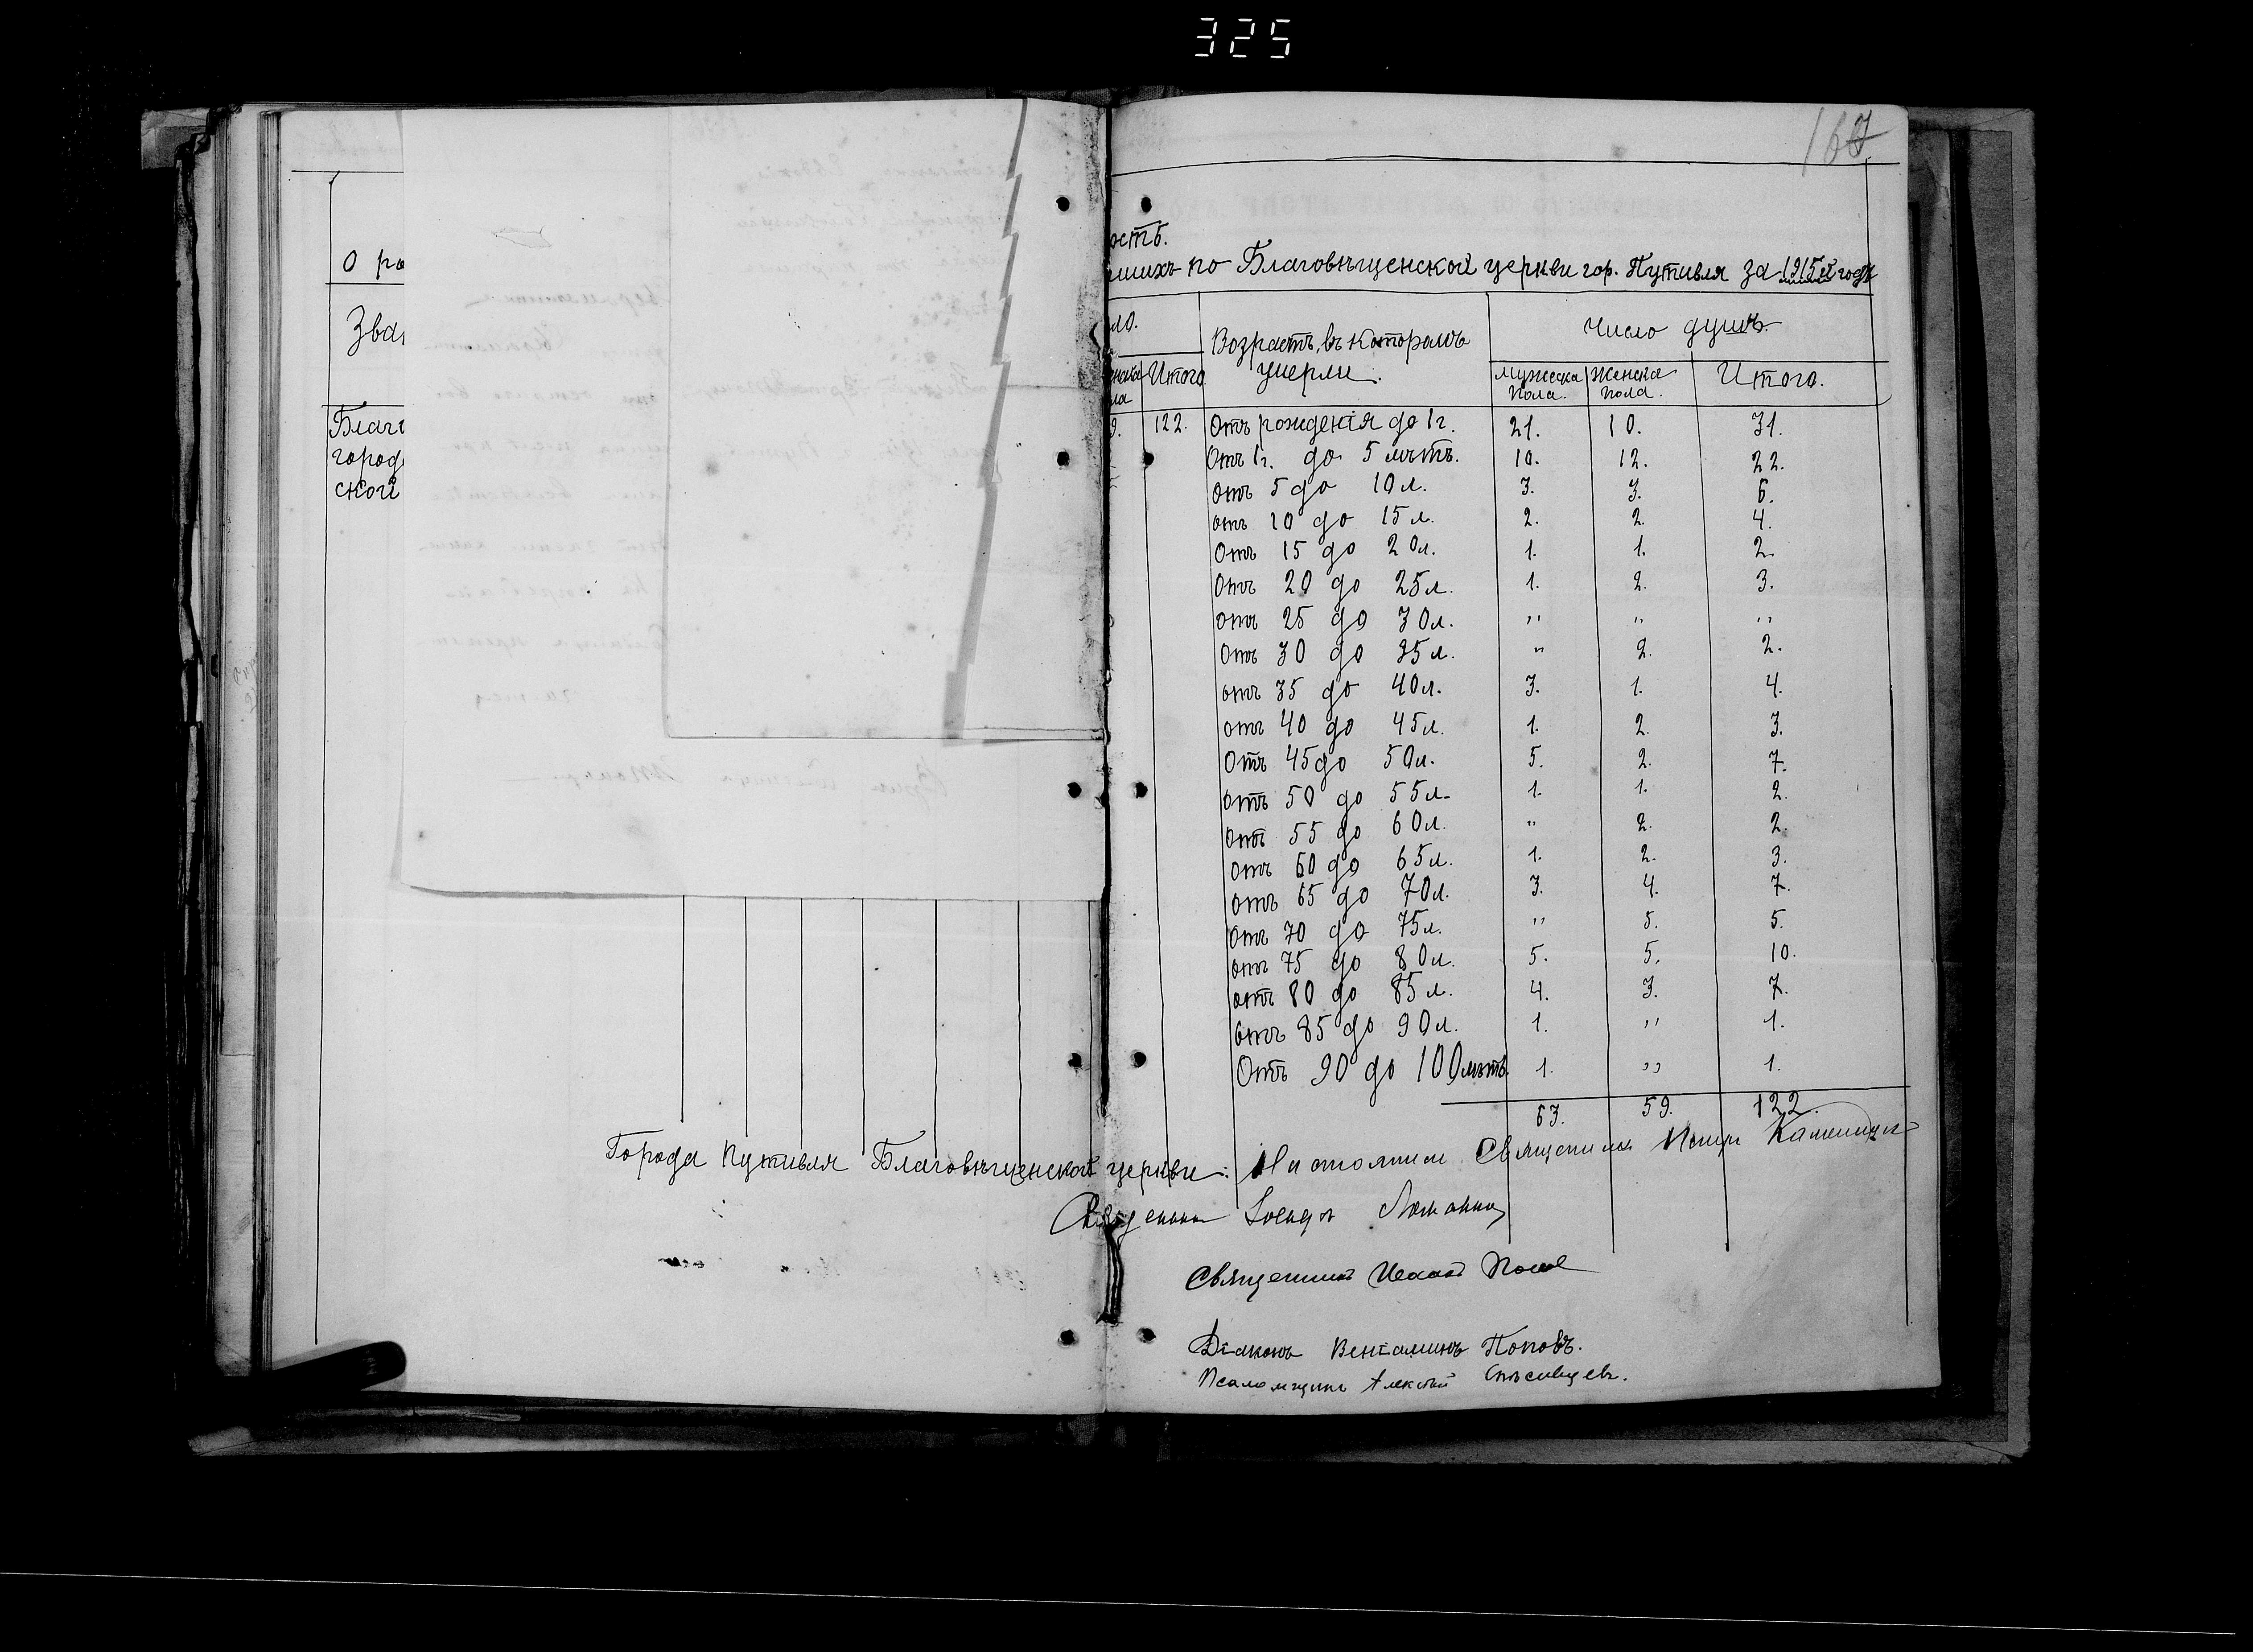 325
167
О ро
Зва
Благо
город
ской
ость.
мшихъ по Благовѣщенской церкви гор. Путивля за 1915й годъ
ло. Возрастъ, въ которомъ умерли. Число душъ.
Итого. Мужеска пола. Женска пола. Итого.
9. 122. Отъ рожденія до 1 г. 21. 10. 31.
Отъ 1 г. до 5 лѣтъ. 10. 12. 22.
Отъ 5 до 10 л. 3. 3. 6.
Отъ 10 до 15 л. 2. 2. 4.
Отъ 15 до 20 л. 1. 1. 2.
Отъ 20 до 25 л. 1. 2. 3.
Отъ 25 до 30 л. " " "
Отъ 30 до 35 л. " 2. 2.
Отъ 35 до 40 л. 3. 1. 4.
Отъ 40 до 45 л. 1. 2. 3.
Отъ 45 до 50 л. 5. 2. 7.
Отъ 50 до 55 л. 1. 1. 2.
Отъ 55 до 60 л. " 2. 2.
Отъ 60 до 65 л. 1. 2. 3.
Отъ 65 до 70 л. 3. 4. 7.
Отъ 70 до 75 л. " 5. 5.
Отъ 75 до 80 л. 5. 5. 10.
Отъ 80 до 85 л. 4. 3. 7.
Отъ 85 до 90 л. 1. " 1.
Отъ 90 до 100 лѣтъ 1. " 1.
63. 59. 122.
Города Путивля Благовѣщенской церкви: Настоятель Священникъ
Священникъ
Священникъ
Діаконъ Веніаминъ Поповъ.
Псаломщикъ Алексѣй